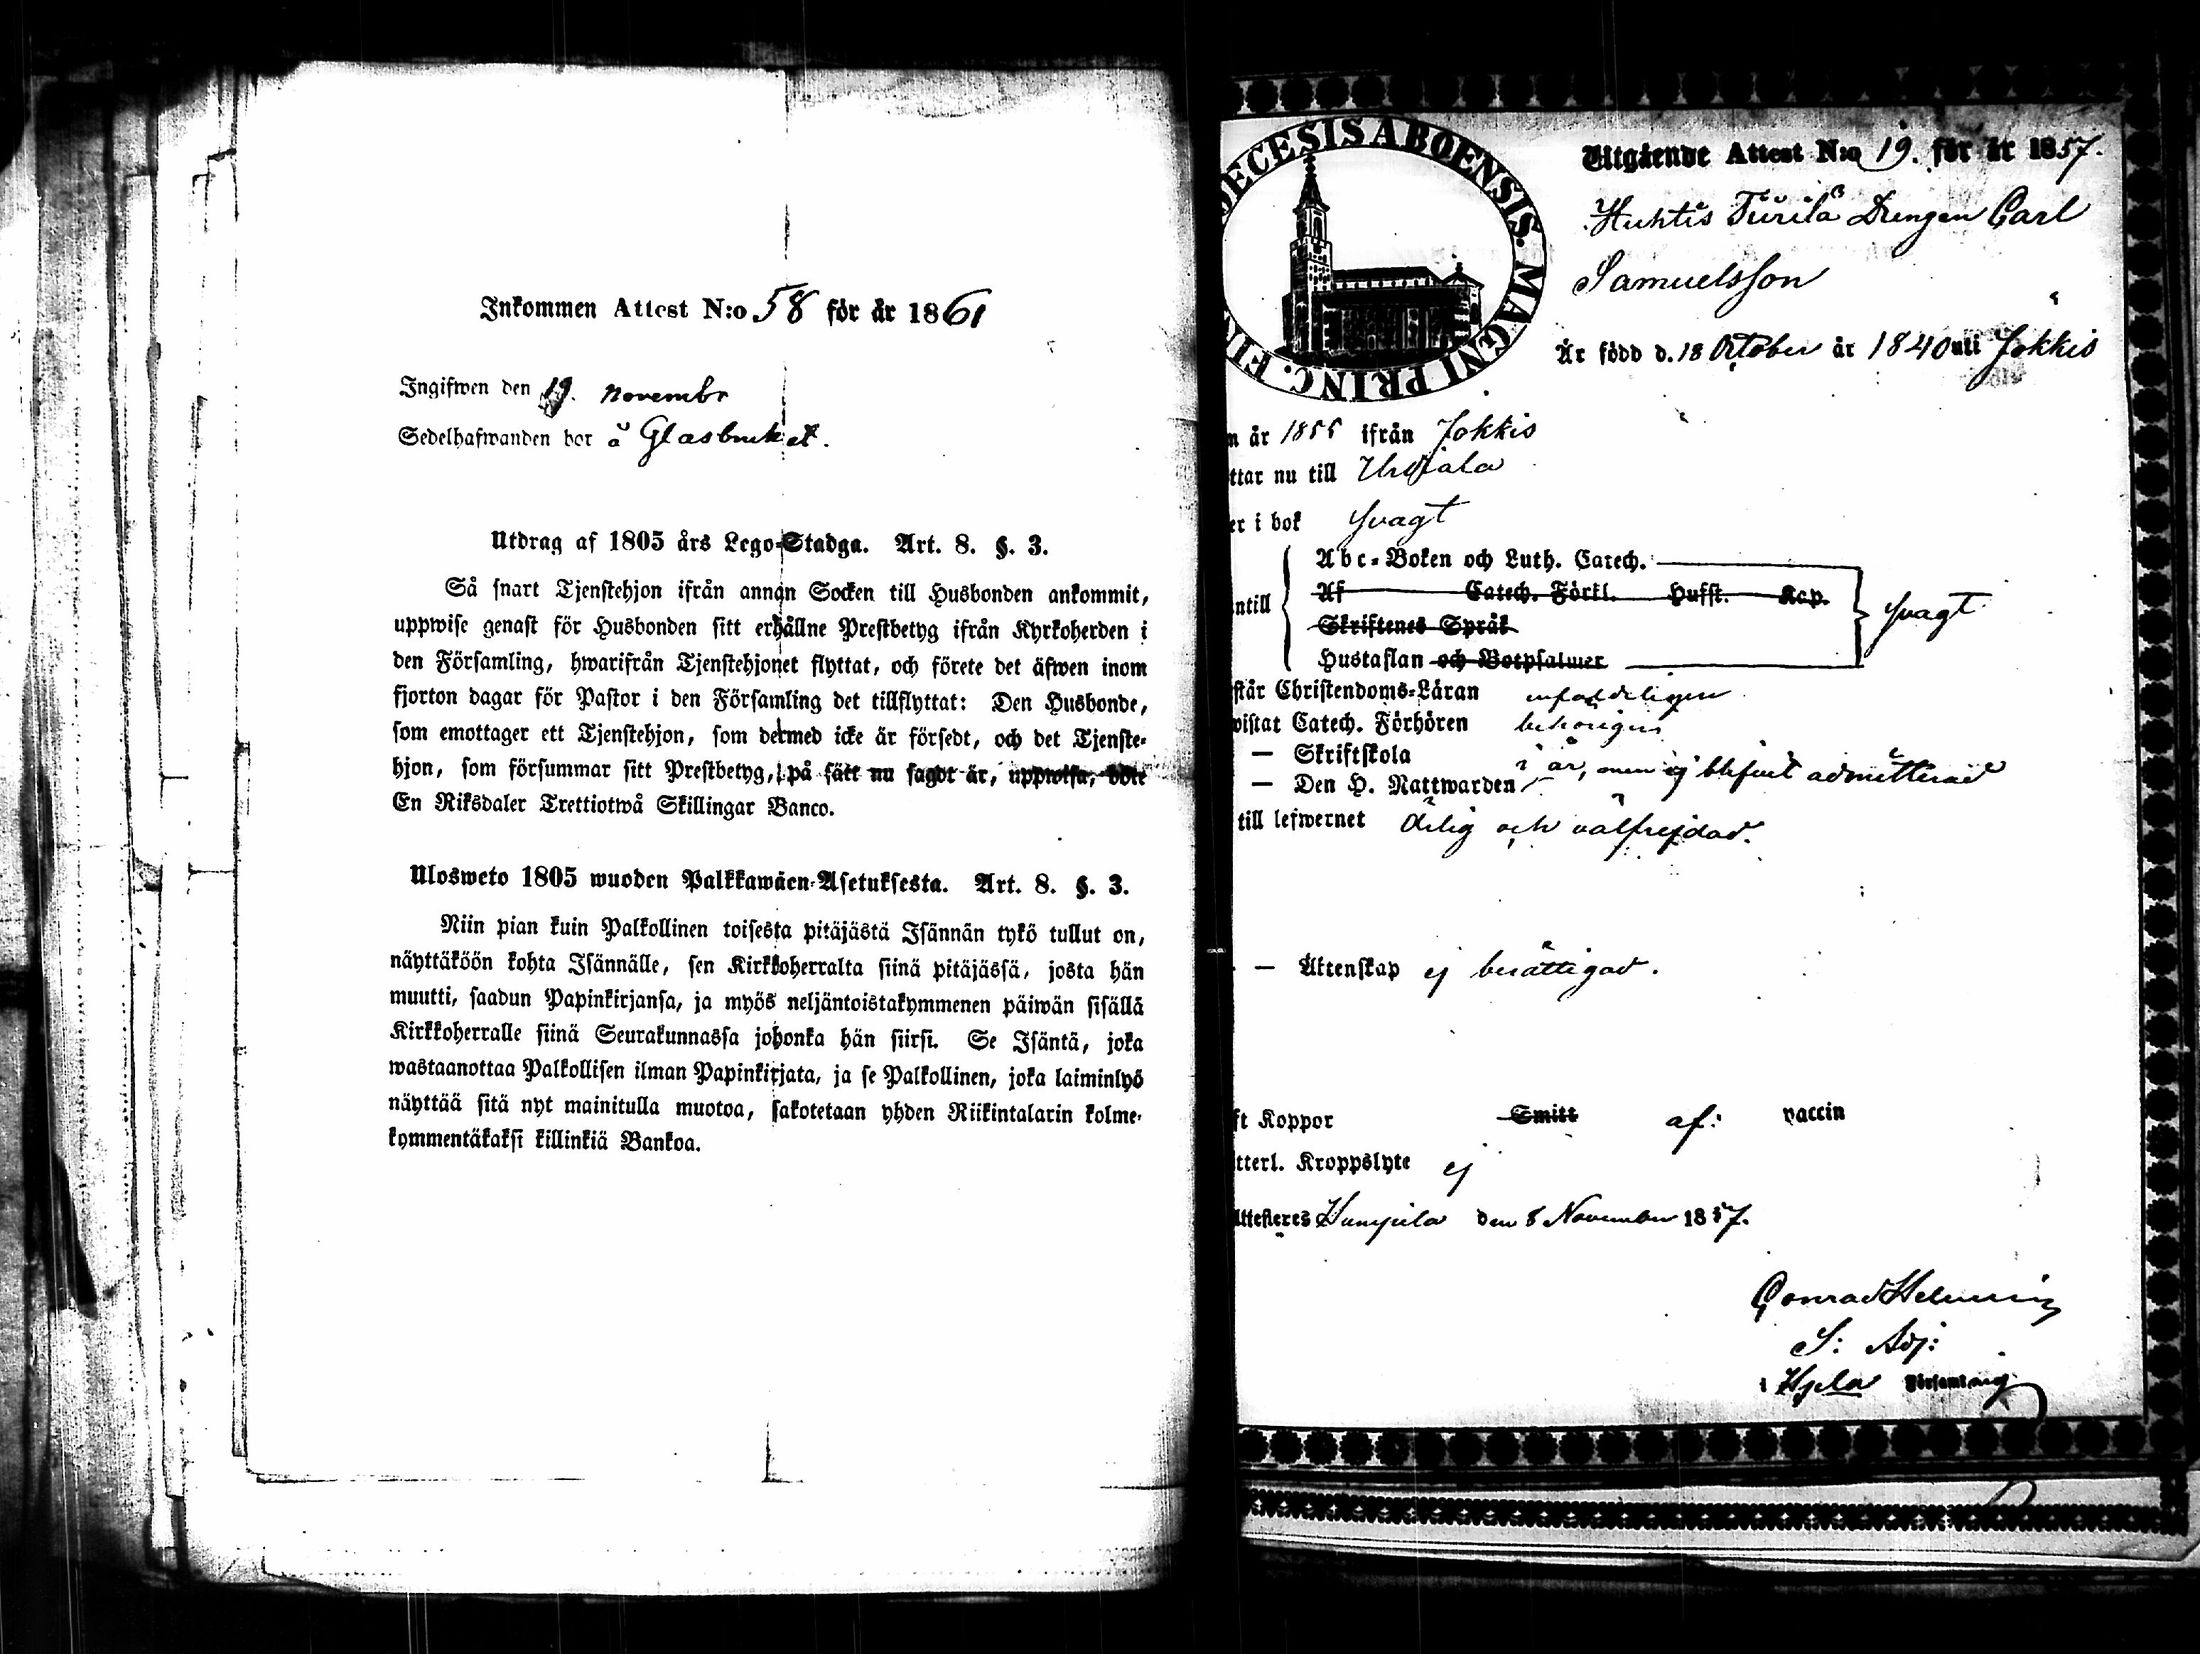 Inkommen Attest N:o 58 för år 1861
Ingifwen den 19. novembr
Sedelhafwanden bor å Glasbruket.
Utdrag af 1805 års Lego-Stadga. Art. 8. §. 3.
Så snart Tjenstehjon ifrån annan Socken till Husbonden ankommit,
uppwise genast för Husbonden sitt erhållne Prestbetyg ifrån Kyrkoherden i
den Församling, hwarifrån Tjenstehjonet flyttat, och förete det äfwen inom
fjorton dagar för Pastor i den Församling det tillflyttat: Den Husbonde,
som emottager ett Tjenstehjon, som dermed icke är försedt, och det Tjenste-
hjon, som försummar sitt Prestbetyg, på sätt nu sagdt är, uppwisa, böte
En Riksdaler Trettiotwå Skillingar Banco.
Ulosweto 1805 wuoden Palkkawäen-Asetuksesta. Art. 8. §. 3.
Niin pian kuin Palkollinen toisesta pitäjästä Isännän tykö tullut on,
näyttäköön kohta Isännälle, sen Kirkkoherralta siinä pitäjässä, josta hän
muutti, saadun Papinkirjansa, ja myös neljäntoistakymmenen päiwän sisällä
Kirkkoherralle siinä Seurakunnassa johonka hän siirsi. Se Isäntä, joka
wastaanottaa Palkollisen ilman Papinkirjata, ja se Palkollinen, joka laiminlyö
näyttää sitä nyt mainitulla muotoa, sakotetaan yhden Riikintalarin kolme-
kymmentäkaksi killinkiä Bankoa.
DECESIS ABOENSIS. MAGNI PRINC. FIN
Utgående Attest N:o 19. för år 1857.
Huhtis Turila Drengen Carl
Samuelsson
Är född d. 18 October år 1840 uti Jokkis
n år 1855 ifrån Jokkis
ttar nu till Urdiala
er i bok svagt
Abc-Boken och Luth. Catech.
ntill Af Catech. Förkl. Husst. Kap.
Skriftenes Språk svagt
Hustaflan och Botpsalmer
står Christendoms-Läran enfaldeligen
wistat Catech. Förhören behörigen
— Skriftskola i år, men ej blifvit admitterad
— Den H. Nattwarden
till lefwernet ärlig och välfrejdad.
— Äktenskap ej berättigad.
ft Koppor Smitt af: vaccin
tterl. Kroppslyte ej
Attesteres Humpila den 8 November 1857.
Conrad
S: Adj:
i Hpila Församling